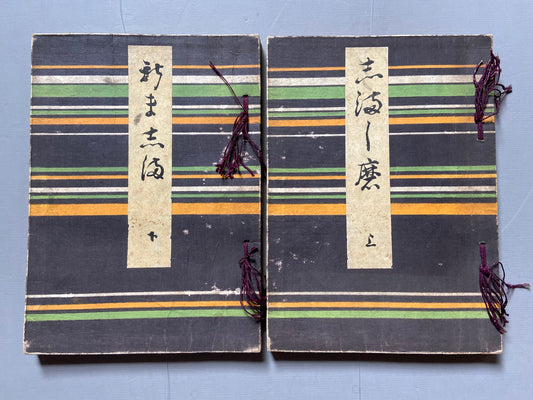 志満し磨
上
新ま志満
下